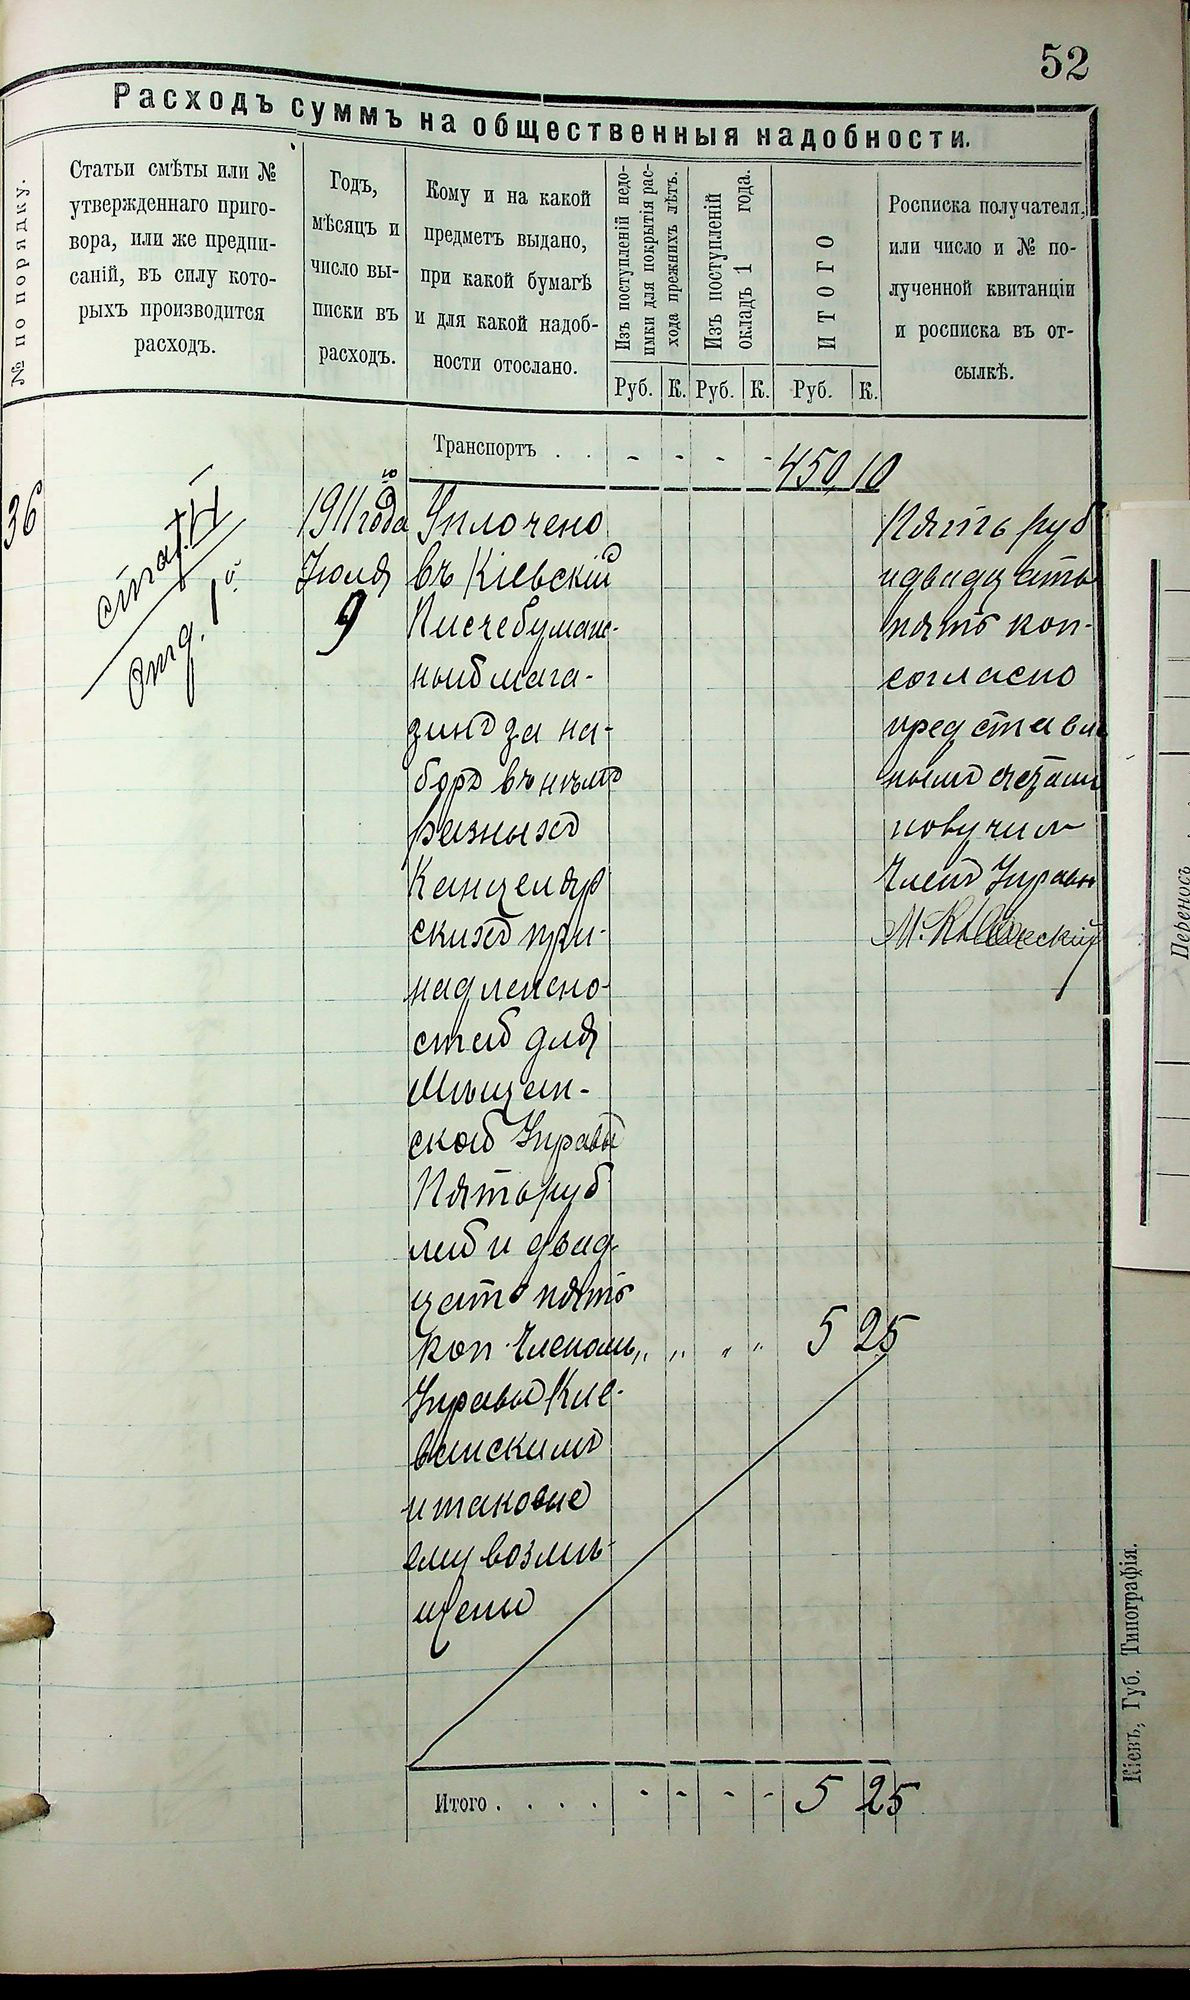 52
Расходъ суммъ на общественныя надобности.
№ по порядку.
Статьи смѣты или №
утвержденнаго приго-
вора, или же предпи-
саній, въ силу кото-
рыхъ производится
расходъ.
Годъ,
мѣсяцъ и
число вы-
писки въ
расходъ.
Кому и на какой
предметъ выдано,
при какой бумагѣ
и для какой надоб-
ности отослано.
Изъ поступленій недо-
имки для покрытія рас-
хода прежнихъ лѣтъ.
Изъ поступленій
окладъ 1 года.
ИТОГО
Росписка получателя,
или число и № по-
лученной квитанціи
и росписка въ от-
сылкѣ.
Руб. К. Руб. К. Руб. К.
Транспортъ . . - - - - 450 10
36
отд. 1о
1911 года
Июля
9
Уплочено
въ Кіевскій
Писчебумаж-
ный мага-
зинъ за на-
боръ въ нѣмъ
разныхъ
Канцеляр
скихъ при-
надлежно-
стей для
Мѣщан-
ской Управы
Пять руб
лей и двад-
цать пять
коп Членомъ „ „ „ „ 5 25
Управы
и таковые
ему возмѣ-
щены
Пять руб
и двадцать
пять коп-
согласно
представлен
нымъ счетам
получилъ
Членъ Управы
Итого . . . . - - - - 5 25
Кіевъ, Губ. Типографія.
Переносъ